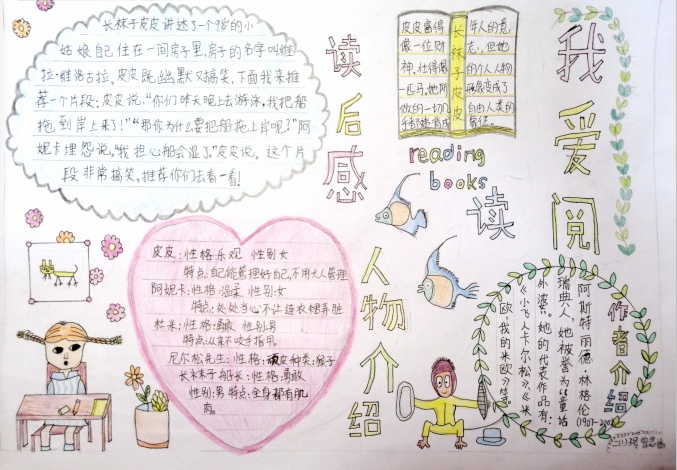 长袜子皮皮讲述了一个9岁的小
姑娘自己住在一间房子里,房子的名字叫维
拉·维洛古拉,皮皮既幽默又搞笑,下面我来推
荐一个片段:皮皮说:“你们昨天晚上去游泳,我把船
拖到岸上来了!”“那你为什么要把船拖上岸呢?”阿
妮卡埋怨说。“我担心船会湿了。”皮皮说。这个片
段非常搞笑,推荐你们去看一看!
读后感
皮皮富得
像一位财
神,壮得像
一匹马,她所
做的一切几
长袜子皮皮
年人的意,
但她
的个人人物
形象变成了
自由人类的
象征。
我爱阅读
reading
books
人物介绍
皮皮:性格:乐观 性别:女
特点:自己能管理好自己,不用大人管理
阿妮卡:性格:温柔 性别:女
特点:处处当心不让连衣裙弄脏
杜米:性格:勇敢 性别:男
特点:从来不咬手指甲
尼尔松先生:性格:顽皮 种类:猴子
长袜子船长:性格:勇敢
性别:男 特点:全身都有肌
肉。
作者介绍
阿斯特丽德·林格伦
瑞典人,她被誉为“童话
外婆”。她的代表作品有:
《小飞人卡尔松》、《米
欧我的米欧》等。